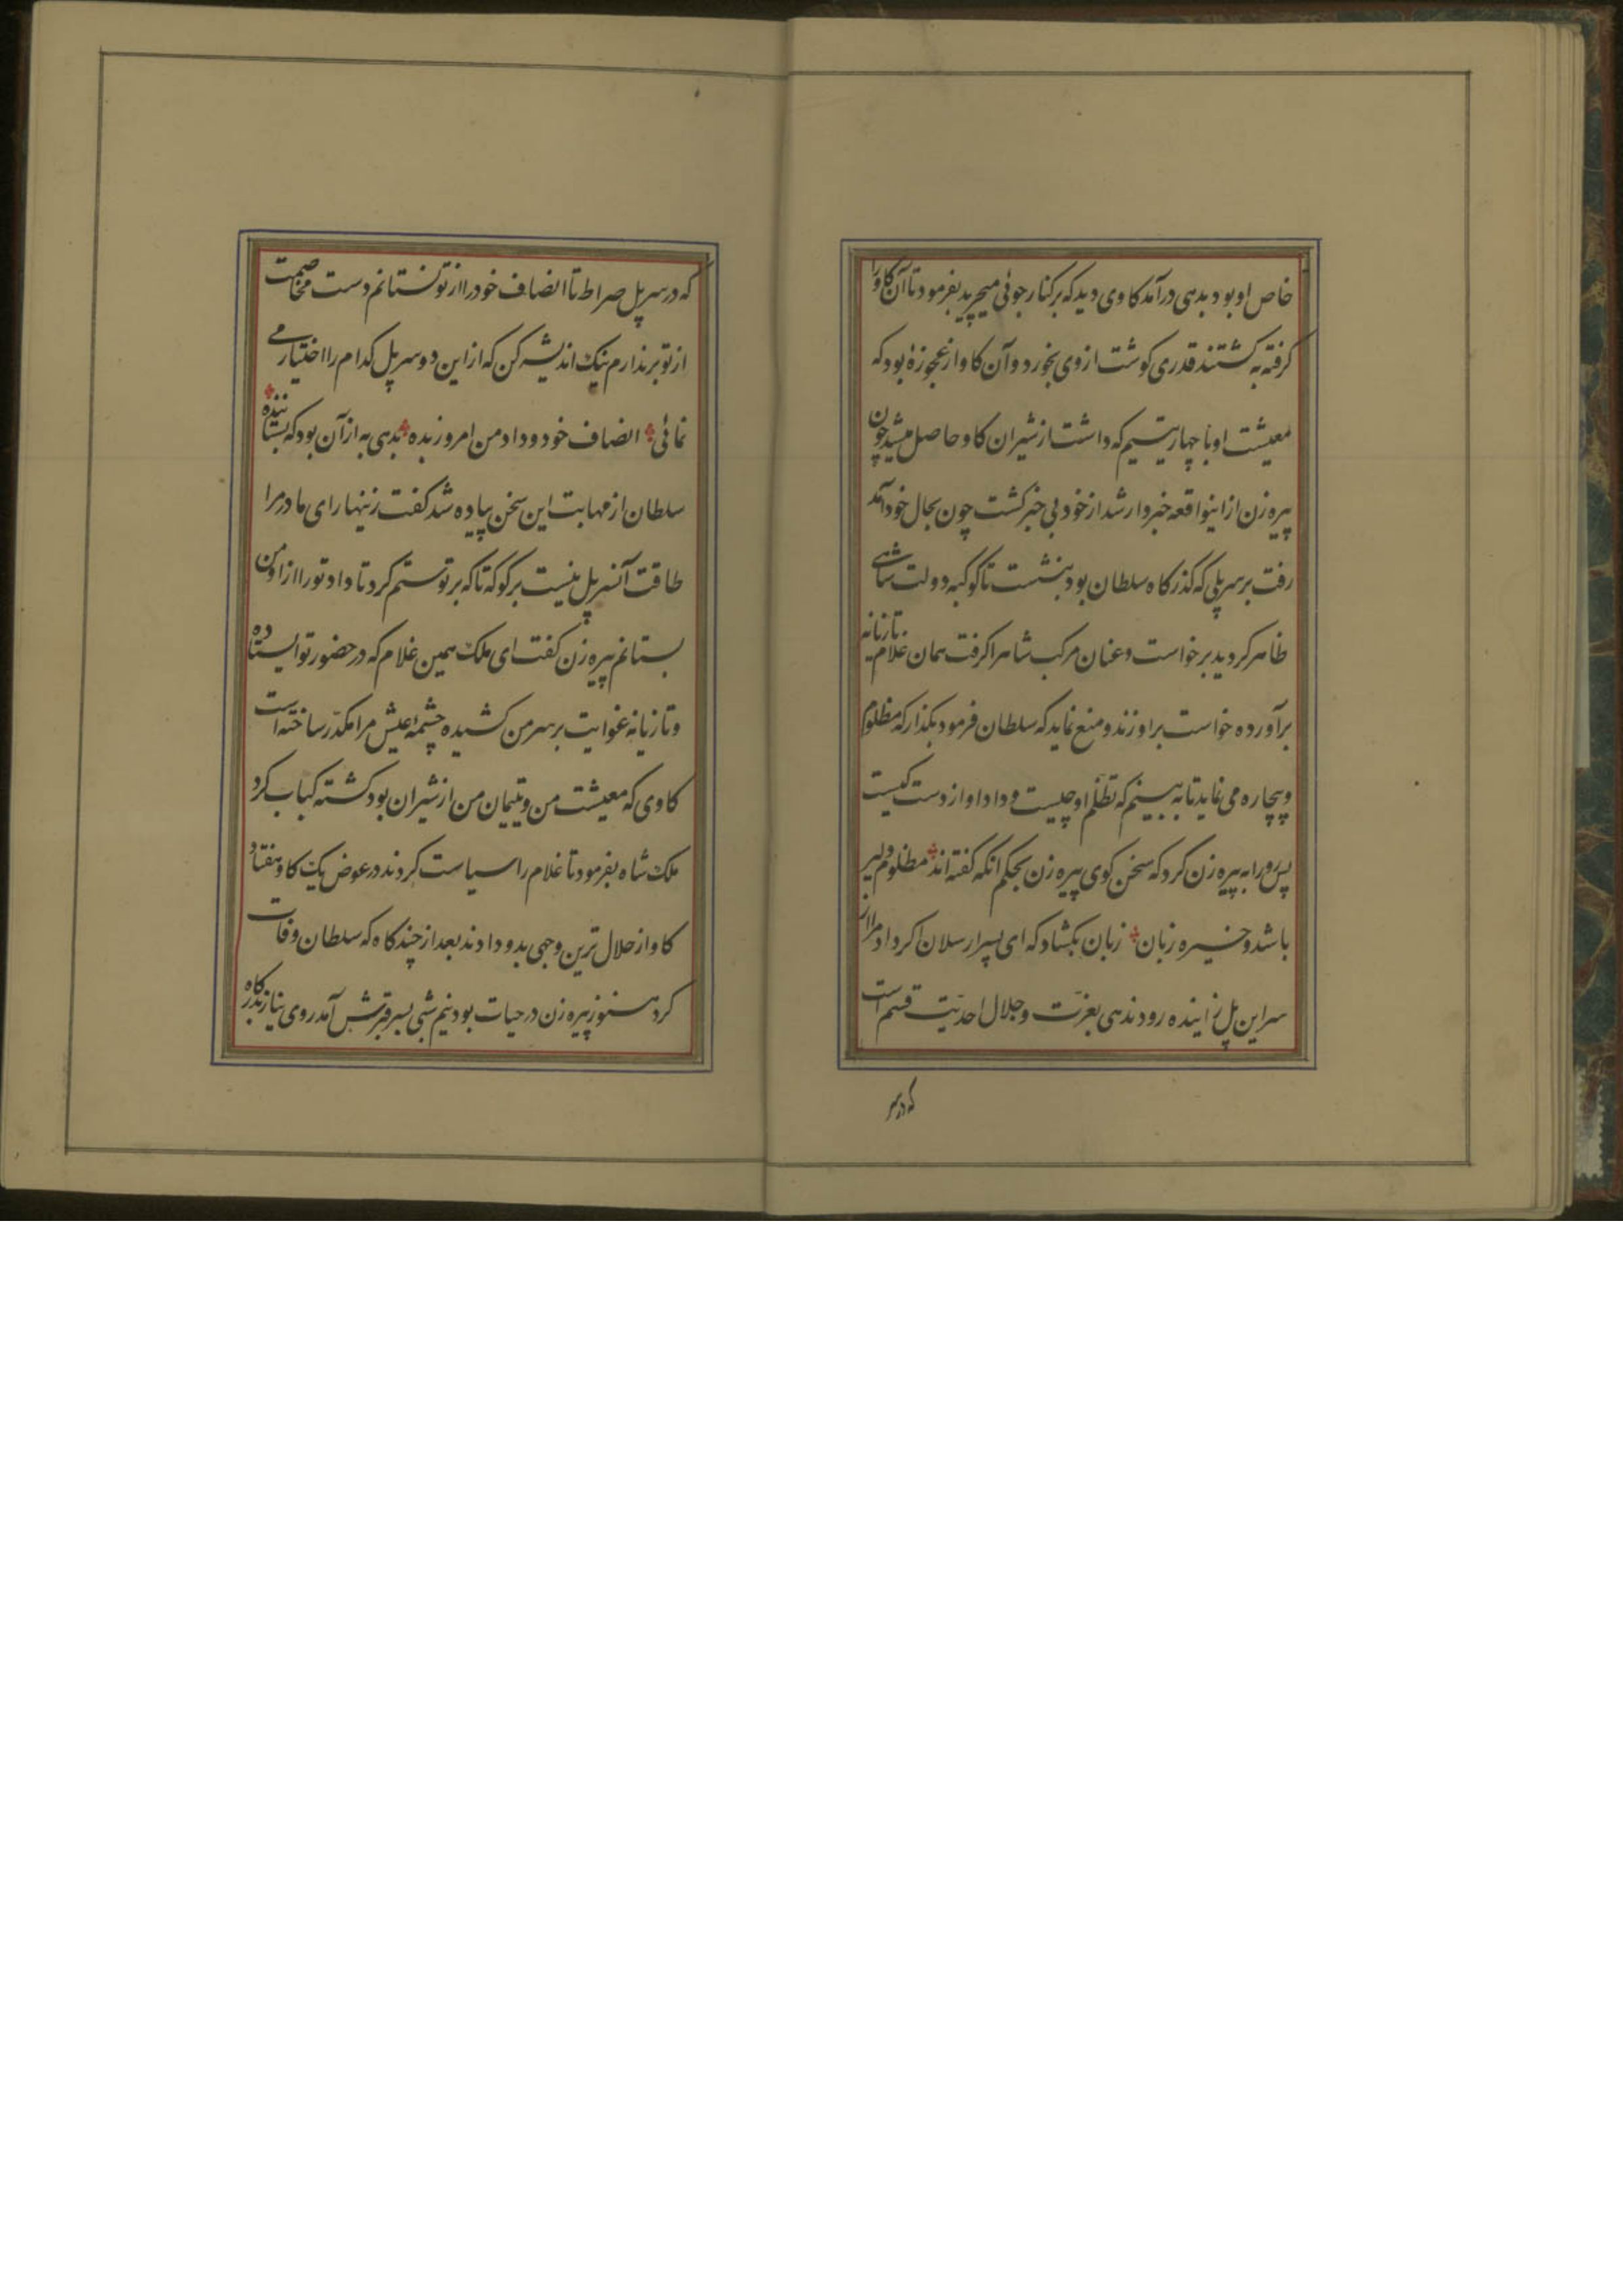 خاص او بود بدهی درآمد کاوی دید که برکنار جوئی میچرید بفرمود تا آن کاو را
کرفته به کشتند قدری کوشت از وی بخورد و آن کاو از عجوزهٔ بود که
معیشت او با چهار یتیم که داشت از شیر ان کاو حاصل میشد چون
پیره زن از اینواقعه خبردار شد از خود بی خبر کشت چون بحال خود آمد
رفت بر سر پلی که گذرکاه سلطان بود بنشست تا کوکبه دولت شاهی
ظاهر کردید برخواست و عنان مرکب شاهرا کرفت همان غلام تازیانه
برآورده خواست بر او زند و منع نماید که سلطان فرمود بگذار که مظلوم
و بیچاره می نماید تا به بینم که تظلم او چیست و داد او از دست کیست
پس رو را به پیره زن کرد که سخن کوی پیره زن بحکم انکه گفته اند مظلوم دلیر
باشد و خیره زبان زبان بکشاد که ای پسر ارسلان اکر داد مرا از
سر این پل زاینده رود ندهی بعزت و جلال احدیت قسم است
که در سر
که در سر پل صراط تا انصاف خود را از تو نستانم دست مخاصمت
از تو برندارم نیک اندیشه کن که از این دو سر پل کدام را اختیار می
نمائی انصاف خود و داد من امروز بده بدهی به از آن بود که بستانند
سلطان از مهابت این سخن پیاده شد گفت زینهار ای مادر مرا
طاقت آنسر پل نیست برکو که تا که بر تو ستم کرد تا داد تو را از او من
بستانم پیره زن کفت ای ملک همین غلام که در حضور تو ایستاده
و تازیانه غوایت بر سر من کشیده چشمهٔ عیش مرا مکدّر ساخته است
کاوی که معیشت من و یتیمان من از شیر ان بود کشته کباب کرد
ملک شاه بفرمود تا غلام را سیاست کردند در عوض یک کاو هفتاد
کاو از حلال ترین وجهی بدو دادند بعد از چند کاه که سلطان وفات
کرد هنوز پیره زن در حیات بود نیم شبی بسر قبرش آمد روی نیاز بدرکاه